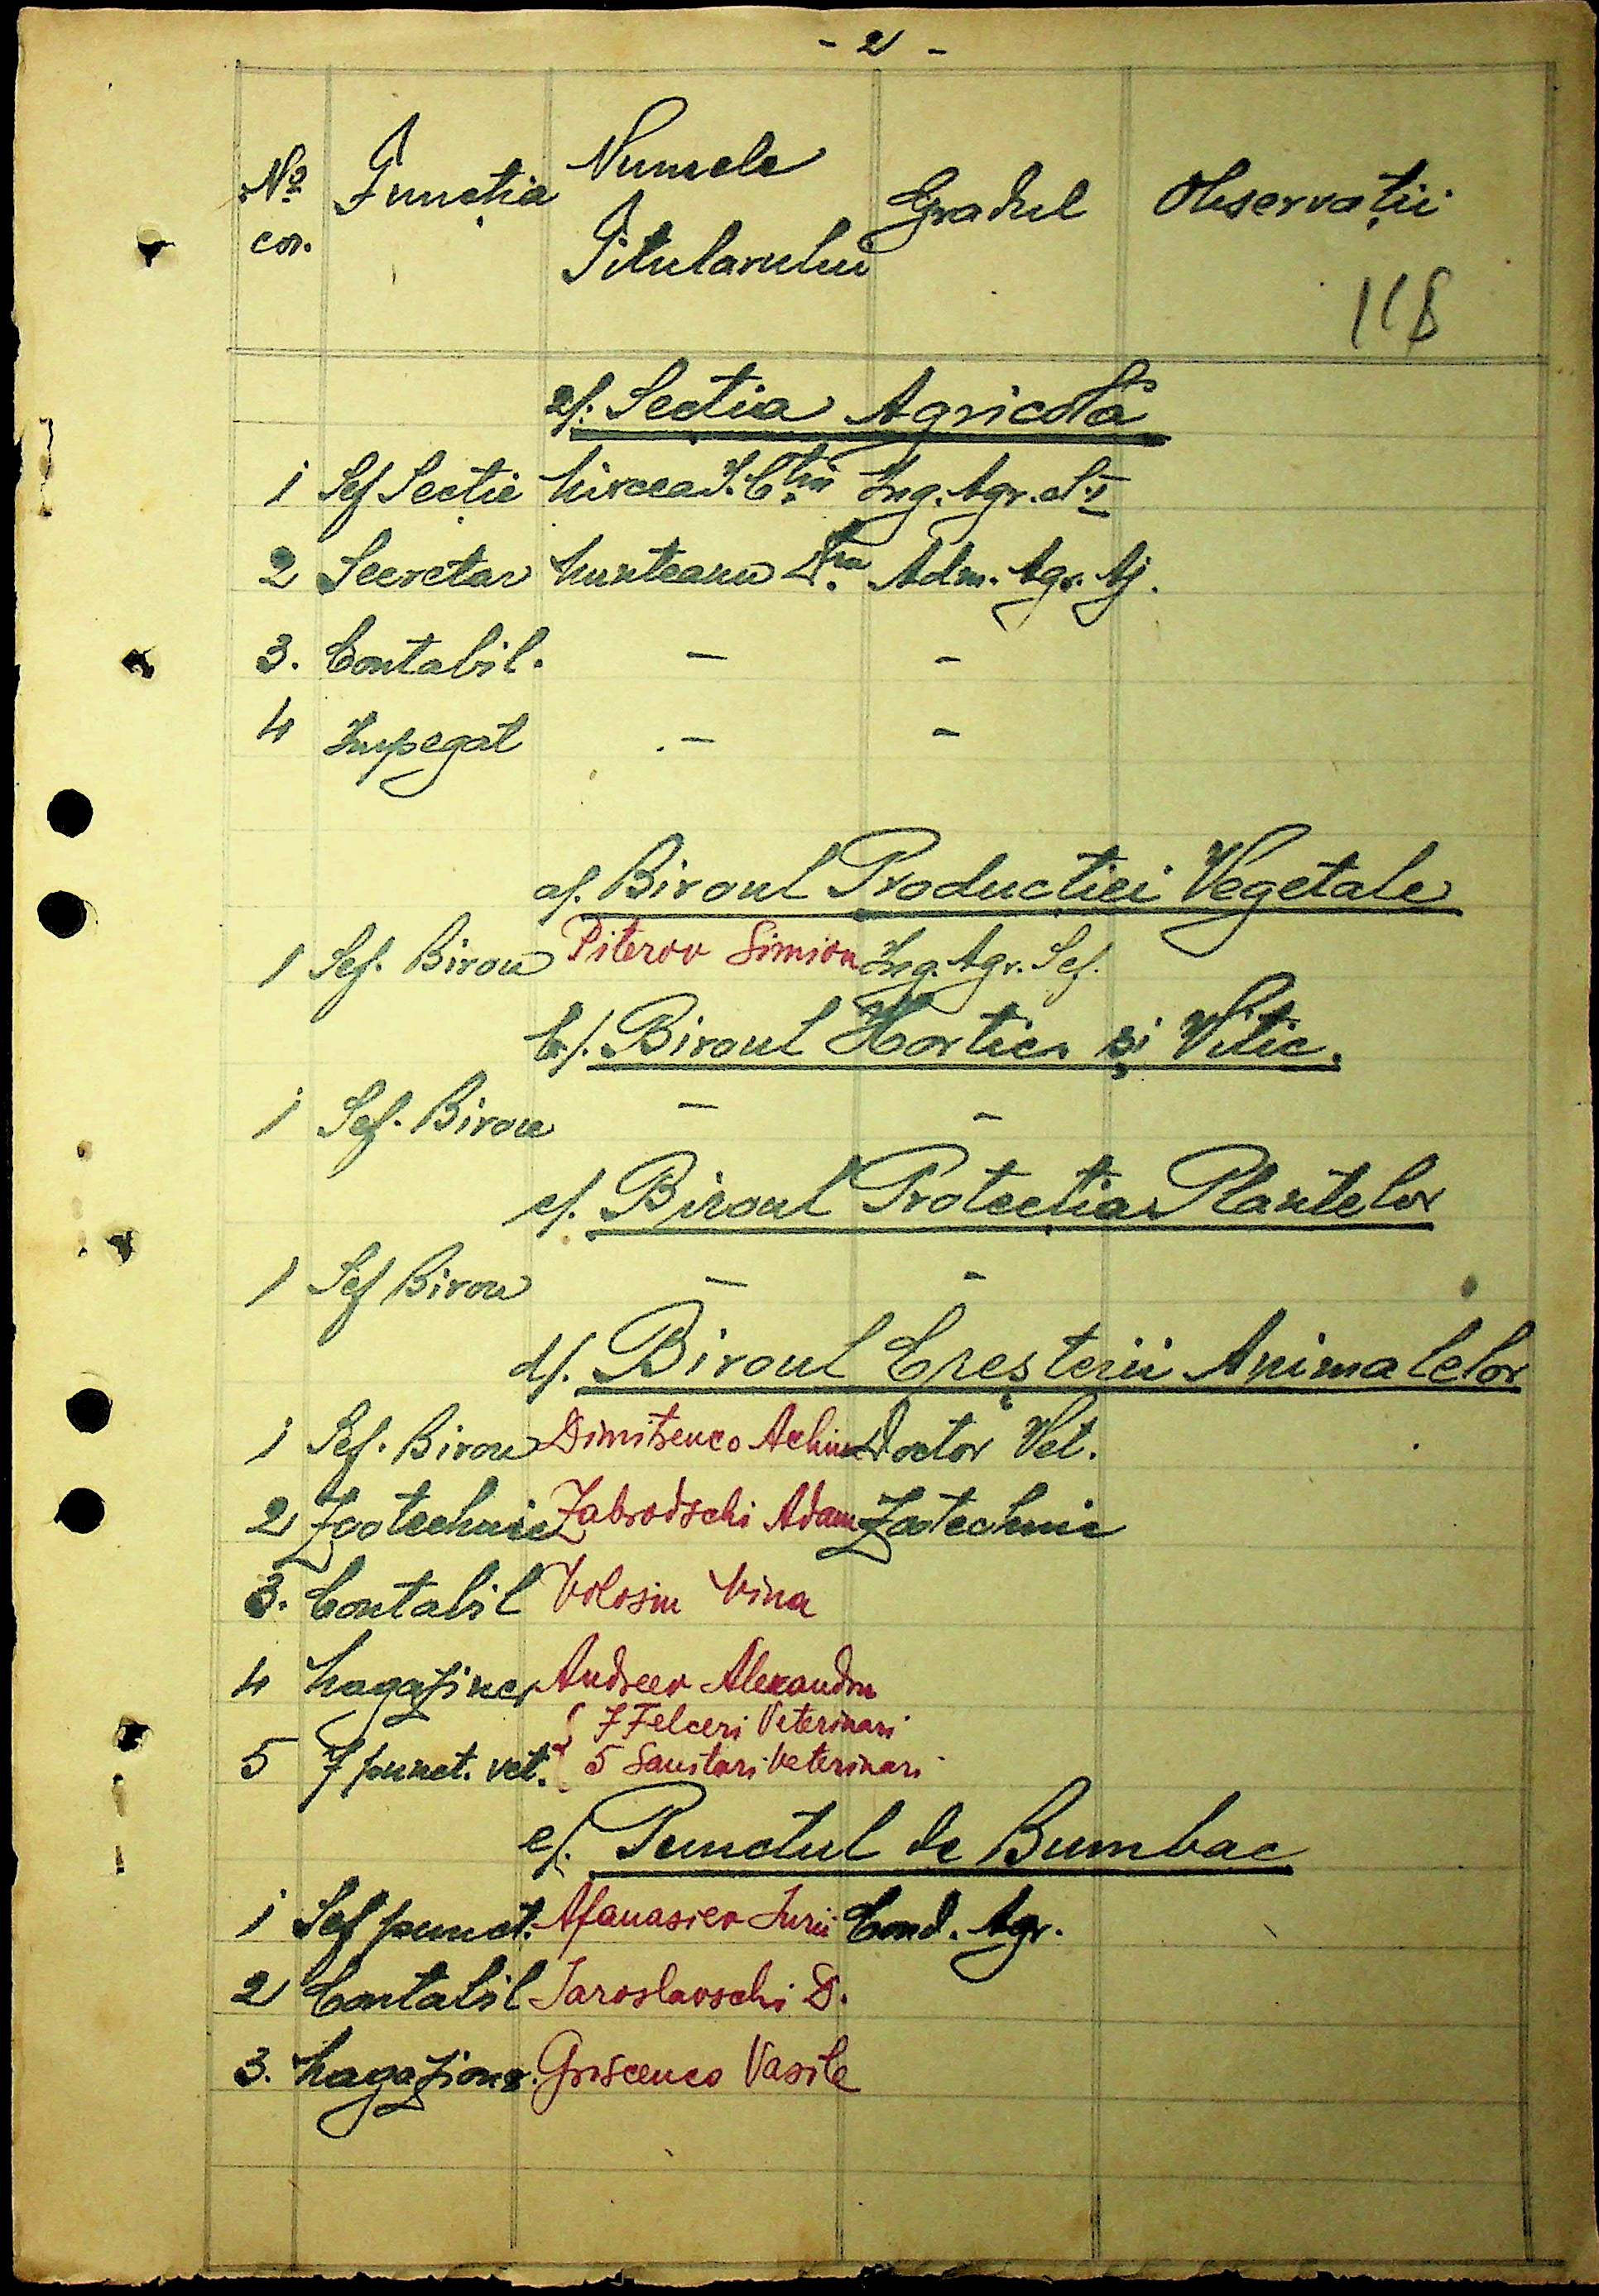 - 2 -
No cor. Funcția Numele Titularului Gradul Observații
118
2/. Secția Agricolă
1 Șef Secție Mircea I. Ctin Ing. Agr. Șt. I
2 Secretar Munteanu Dtru Adm. Agr. Aj.
3. Contabil. – –
4 Impegat .– –
a/. Biroul Producției Vegetale
1 Șef. Birou Piterov Simion Ing. Agr. Șef.
b/. Biroul Hortic. și Vitic.
1 Șef. Birou – –
c/. Biroul Protecția Plantelor
1 Șef Birou – –
d/. Biroul Creșterii Animalelor
1 Șef. Birou Dimitrenco Achim Doctor Vet.
2 Zootechnic Zabrodschi Adam Zootechnic
3. Contabil Volosin Nina
4 Magaziner Andreev Alexandru
5 7 punct. vet. { 7 Felceri Veterinari
5 Sanitari Veterinari
e/. Punctul de Bumbac
1 Șef punct. Afanasiev Iurii Cond. Agr.
2 Contabil Iaroslavschi D.
3. Magazioner. Griscenco Vasile